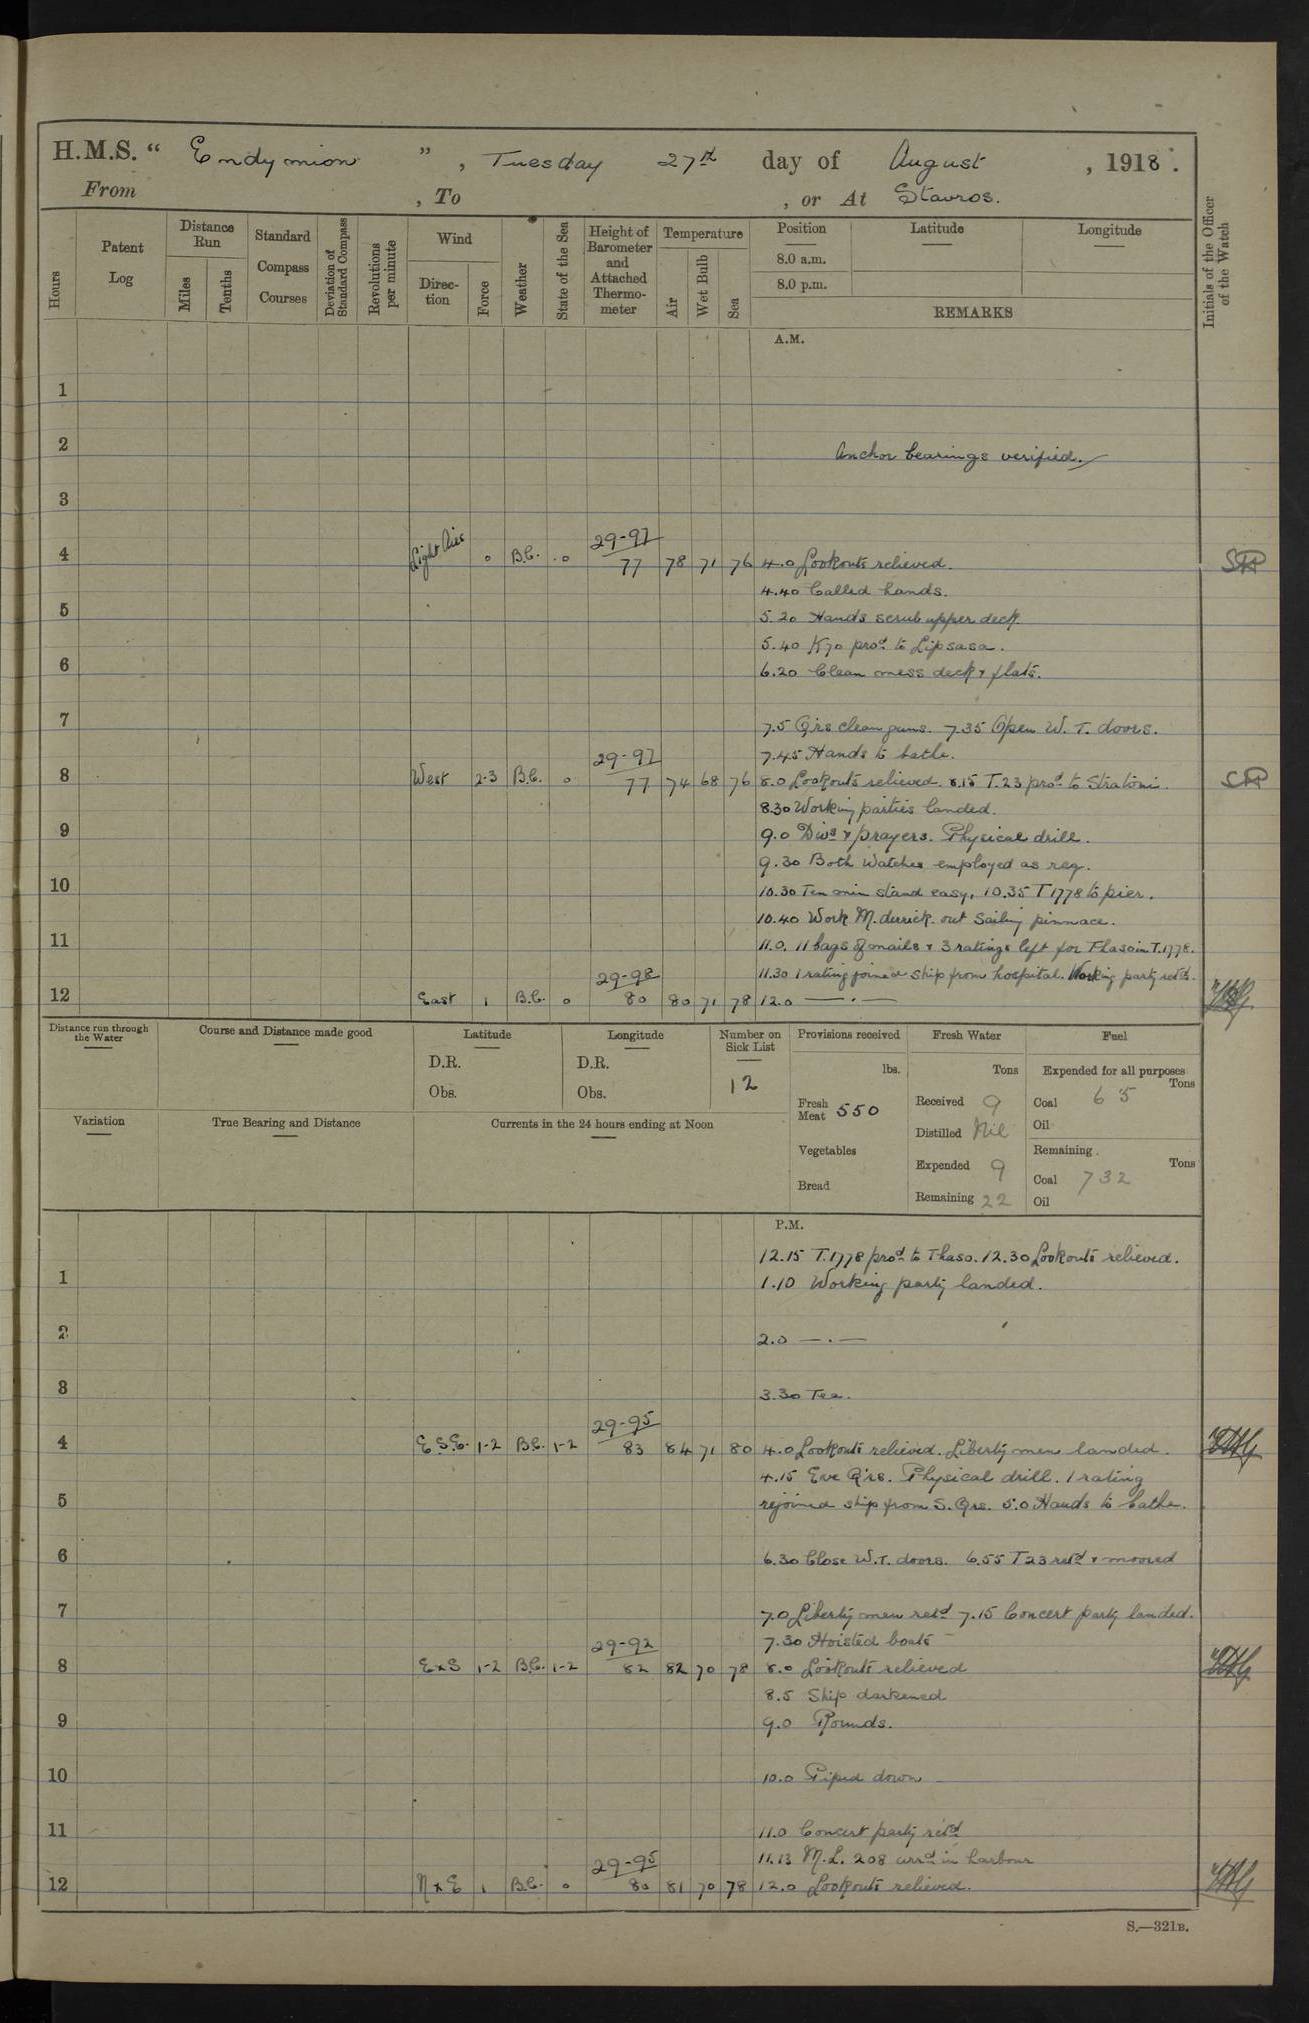 H.M.S. “ Endymion ” , Tuesday 27th day of August , 1918 .
From , To , or At Stavros.
Hours
Patent Log
Distance Run
Miles
Tenths
Standard Compass Courses
Deviation of Standard Compass
Revolutions per minute
Wind
Direc-tion
Force
Weather
State of the Sea
Height of Barometer and Attached Thermo-meter
Temperature
Air
Wet Bulb
Sea
Position
8.0 a.m.
8.0 p.m.
Latitude
Longitude
REMARKS
Initials of the Officer of the Watch
A.M.
1
2 Anchor bearings verified.
3
29-97
4 Light Airs 0 B.C. 0 77 78 71 76 4.0 Lookouts relieved.
4.40 Called hands.
5 5.20 Hands scrub upper deck.
5.40 K70 procd to Lipsasa.
6 6.20 Clean mess deck & flats.
7 7.5 Qrs clean guns. 7.35 Open W. T. doors.
29-97 7.45 Hands to bathe.
8 West 2-3 B.C. 0 77 74 68 76 8.0 Lookouts relieved. 8.15 T.23 procd to Stratoni.
8.30 Working parties landed.
9 9.0 Divs & prayers. Physical drill.
9.30 Both Watches employed as req.
10 10.30 Ten min stand easy, 10.35 T 1778 to pier.
10.40 Work M. derrick. out Sailing pinnace.
11 11.0. 11 bags of mails & 3 ratings left for Thaso in T.1778.
29-98 11.30 1 rating joined ship from hospital. Working party retd.
12 East 1 B.C. 0 80 80 71 78 12.0 — . —
Distance run through the Water
Course and Distance made good
Latitude
D.R.
Obs.
Longitude
D.R.
Obs.
Number on Sick List
12
Provisions received
lbs.
Fresh Meat 550
Vegetables
Bread
Fresh Water
Tons
Received 9
Distilled Nil
Expended 9
Remaining 22
Fuel
Expended for all purposes
Tons
Coal 65
Oil
Remaining
Tons
Coal 732
Oil
Variation
True Bearing and Distance
Currents in the 24 hours ending at Noon
P.M.
12.15 T.1778 procd to Thaso. 12.30 Lookouts relieved.
1 1.10 Working party landed.
2 2.0 — . —
3 3.30 Tea.
29-95
4 E.S.E. 1-2 B.C. 1-2 83 84 71 80 4.0 Lookouts relieved. Liberty men landed.
4.15 Eve Qrs. Physical drill. 1 rating
5 rejoined ship from S. Qrs. 5.0 Hands to bathe.
6 6.30 Close W.T. doors. 6.55 T 23 retd & moored
7 7.0 Liberty men retd 7.15 Concert party landed.
29-92 7.30 Hoisted boats
8 ExS 1-2 B.C. 1-2 82 82 70 78 8.0 Lookouts relieved
8.5 Ship darkened
9 9.0 Rounds.
10 10.0 Piped down
11 11.0 Concert party retd
29-95 11.13 M.L. 208 arrd in harbour
12 NxE 1 B.C. 0 80 81 70 78 12.0 Lookouts relieved.
S.—321B.